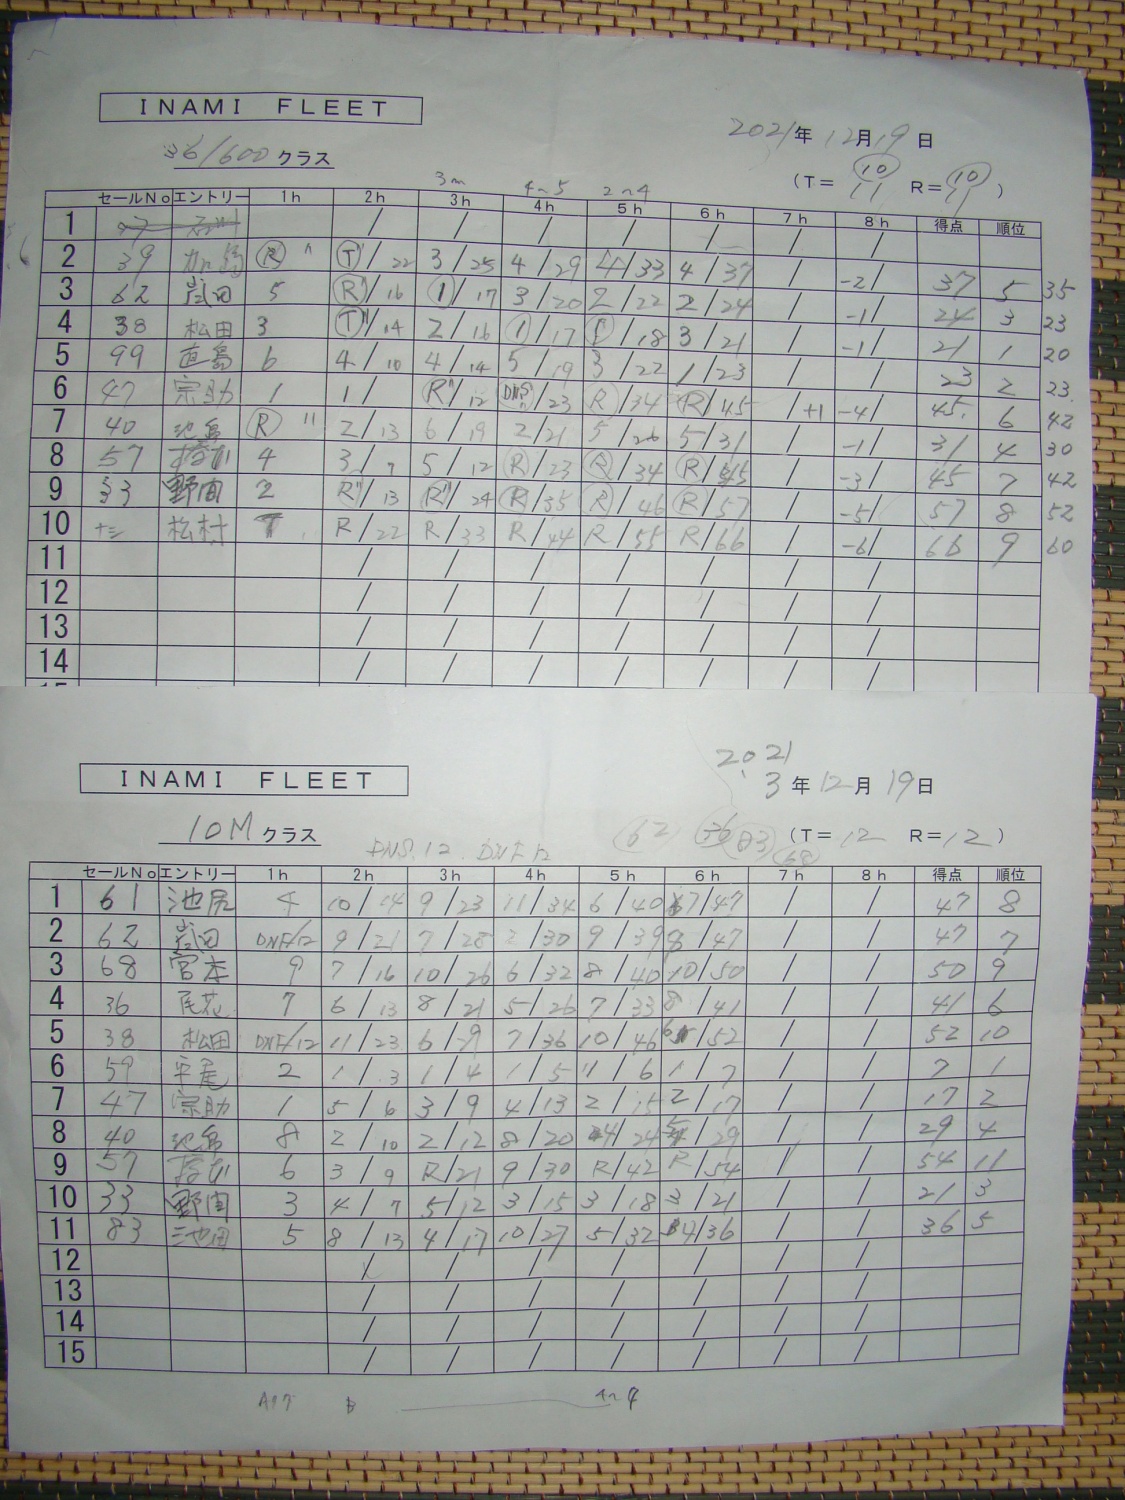 INAMI FLEET
2021年 12月 19日
36/600 クラス
(T= 11 10 R= 11 10 )
3m 4~5 2~4
セールNo エントリー 1h 2h 3h 4h 5h 6h 7h 8h 得点 順位
1 / / / / / / /
2 39 R T / 22 3 / 25 4 / 29 4 / 33 4 / 37 / -2/ 37 5 35
3 62 岩田 5 R / 16 1 / 17 3 / 20 2 / 22 2 / 24 / -1/ 24 3 23
4 38 松田 3 T / 14 2 / 16 1 / 17 1 / 18 3 / 21 / -1/ 21 1 20
5 99 直島 6 4 / 10 4 / 14 5 / 19 3 / 22 1 / 23 / / 23 2 23
6 47 宗助 1 1 / R / 12 DNS / 23 R / 34 R / 45 / +1 -4/ 45 6 42
7 40 池島 R 11 2 / 13 6 / 19 2 / 21 5 / 26 5 / 31 / -1/ 31 4 30
8 57 4 3 / 7 5 / 12 R / 23 R / 34 R / 45 / -3/ 45 7 42
9 33 野間 2 R / 13 R / 24 R / 35 R / 46 R / 57 / -5/ 57 8 52
10 松村 T R / 22 R / 33 R / 44 R / 55 R / 66 / -6/ 66 9 60
11 / / / / / / /
12 / / / / / / /
13 / / / / / / /
14 / / / / / / /
INAMI FLEET
2021
3年 12月 19日
10M クラス
DNS.12. DNF 12 62 36 83 68 (T= 12 R= 12 )
セールNo エントリー 1h 2h 3h 4h 5h 6h 7h 8h 得点 順位
1 61 池尻 4 10 / 14 9 / 23 11 / 34 6 / 40 7 / 47 / / 47 8
2 62 岩田 DNF/12 9 / 21 7 / 28 2 / 30 9 / 39 8 / 47 / / 47 7
3 68 宮本 9 7 / 16 10 / 26 6 / 32 8 / 40 10 / 50 / / 50 9
4 36 尾花 7 6 / 13 8 / 21 5 / 26 7 / 33 8 / 41 / / 41 6
5 38 松田 DNF/12 11 / 23 6 / 29 7 / 36 10 / 46 6 / 52 / / 52 10
6 59 平尾 2 1 / 3 1 / 4 1 / 5 1 / 6 1 / 7 / / 7 1
7 47 宗助 1 5 / 6 3 / 9 4 / 13 2 / 15 2 / 17 / / 17 2
8 40 池島 8 2 / 10 2 / 12 8 / 20 4 / 24 5 / 29 / / 29 4
9 57 6 3 / 9 R / 21 9 / 30 R / 42 R / 54 / / 54 11
10 33 野間 3 4 / 7 5 / 12 3 / 15 3 / 18 3 / 21 / / 21 3
11 83 池田 5 8 / 13 4 / 17 10 / 27 5 / 32 4 / 36 / / 36 5
12 / / / / / / /
13 / / / / / / /
14 / / / / / / /
15 / / / / / / /